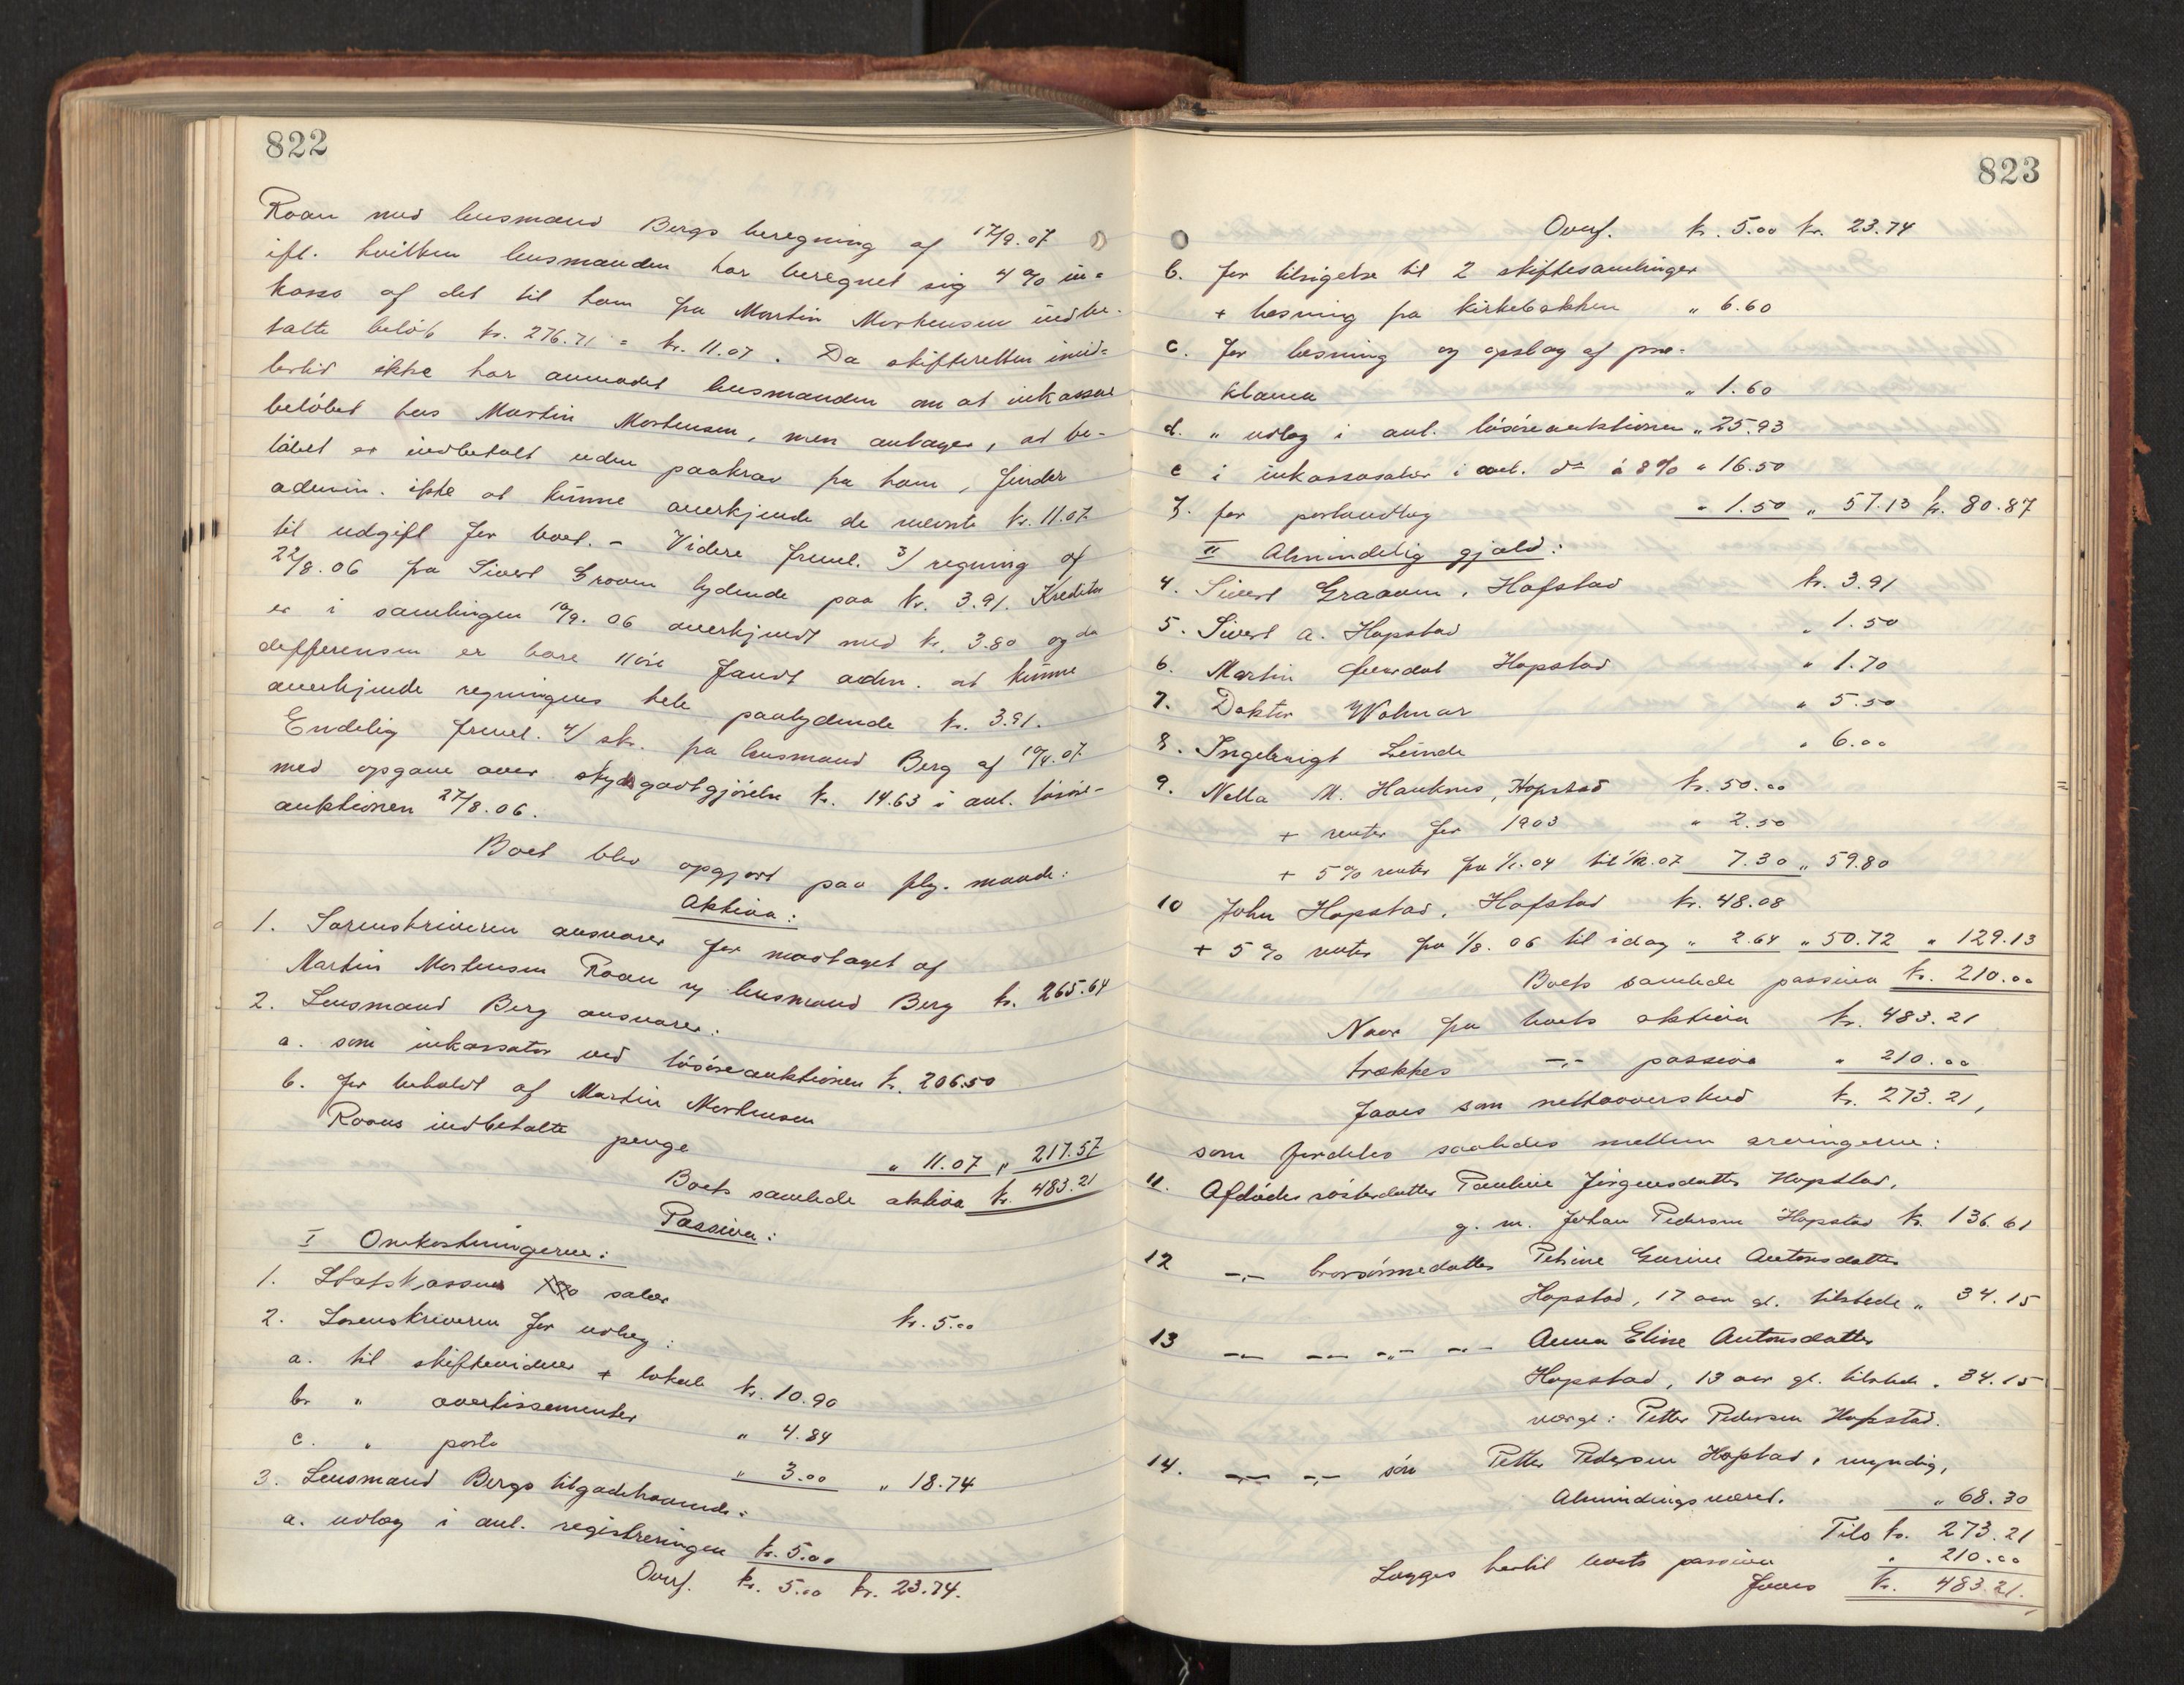 822
Roan med lensmand Bergs beregning af 17/9.07
ifl. hvilken lensmanden har beregnet sig 4 % in=
kasso af det til ham fra Martin Mortensen indbe-
talte beløb kr. 276.71 = kr. 11.07. Da skifteretten imid=
lertid ikke har anmodet lensmanden om at inkassere
beløbet hos Martin Mortensen, men antager, at be-
løbet er indbetalt uden paakrav fra ham, finder
admin. ikke at kunne anerkjende de nævnte kr. 11.07
til udgift for boet. - Videre freml. 3/ regning af
22/8.06 fra Sivert Graaum lydende paa kr. 3.91. Kreditor
er i samlingen 10/9.06 anerkjendt med kr. 3.80 og da
defferensen er bare 11 öre fandt adm. at kunne
anerkjende regningens hele paalydende kr. 3.91.
Endelig freml. 4/ skr. fra lensmand Berg af 10/4.07
med opgave over skydsgodtgjörelse kr. 14.63 i anl. lösöre-
auktionen 27/8.06.
Boet blev opgjort paa flg. maade:
Aktiva:
1. Sorenskriveren ansvarer for modtaget af
Martin Mortensen Roan og lensmand Berg kr. 265.64
2. Lensmand Berg ansvarer:
a. som inkassator ved lösöreauktionen kr. 206.50
b. for beholdt af Martin Mortensen
Roans indbetalte penge " 11.07 " 217.57
Boets samlede aktiva kr. 483.21
Passiva:
I Omkostningerne:
1. Statskassen salær kr. 5.00
2. Sorenskriveren for udlæg:
a. til skiftevidner + lokale kr. 10.90
b. " avertissementer " 4.84
c. " porto " 3.00 " 18.74
3. Lensmand Bergs tilgodehavende:
a. udlæg i anl. registreringen kr. 5.00
Overf. kr. 5.00 kr. 23.74.
823
Overf. kr. 5.00 kr. 23.74
b. for tilsigelse til 2 skiftesamlinger
+ læsning fra kirkebakken " 6.60
c. for læsning og opslag af pro-
klama " 1.60
d. " udlæg i anl. lösöreauktionen " 25.93
e i inkassosalær i anl. do á 8% " 16.50
f. for portoudlæg " 1.50 " 57.13 kr. 80.87
II Almindelig gjæld:
4. Sivert Graaum, Hofstad kr. 3.91
5. Sivert A. Hopstad " 1.50
6. Martin Hopstad " 1.70
7. Doktor Wolmar " 5.50
8. Ingebrigt Leinde " 6.00
9. Nella M. Hauknes, Hopstad kr. 50.00
+ renter for 1903 " 2.50
+ 5% renter fra 1/1.04 til 1/12.07 7.30 " 59.80
10 John Hopstad, Hofstad kr. 48.08
+ 5% renter fra 1/8.06 til idag " 2.64 " 50.72 " 129.13
Boets samlede passiva kr. 210.00
Naar fra boets aktiva kr. 483.21
trækkes -"- passiva " 210.00
faaes som nettooverskud kr. 273.21,
som fordeles saaledes mellem arvingerne:
11. Afdödes sösterdatter Pauline Jörgensdatter Hopstad,
g. m. Johan Pedersen Hopstad kr. 136.61
12 -"- brorsönnedatter Petrine Gurine Antonsdatter
Hopstad, 17 aar gl. tilstede " 34.15
13 -"- -"- -"- -"- Anna Eline Antonsdatter
Hopstad, 13 aar gl. tilstede " 34.15
værge: Petter Pedersen Hopstad.
14. -"- -"- sön Petter Pedersen Hopstad, myndig,
Almindingsværet. " 68.30
Tils kr. 273.21
Lægges hertil boets passiva " 210.00
faaes kr. 483.21.